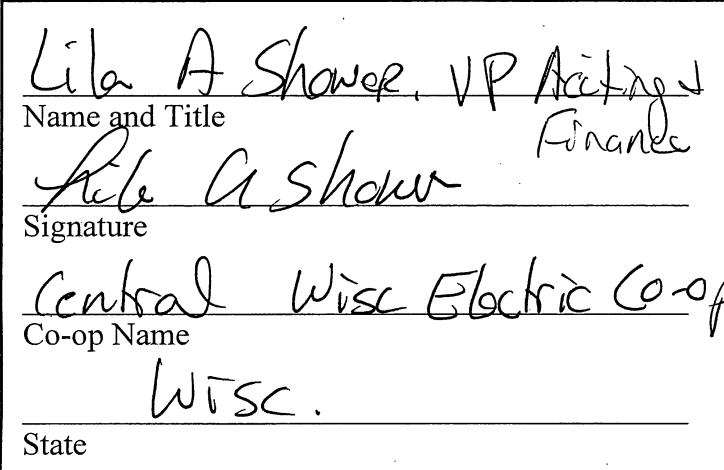 Lila A Shower, VP Acctng &
Finance
Name and Title
Lila A Shower
Signature
Central Wisc Electric Co-op
Co-op Name
Wisc.
State